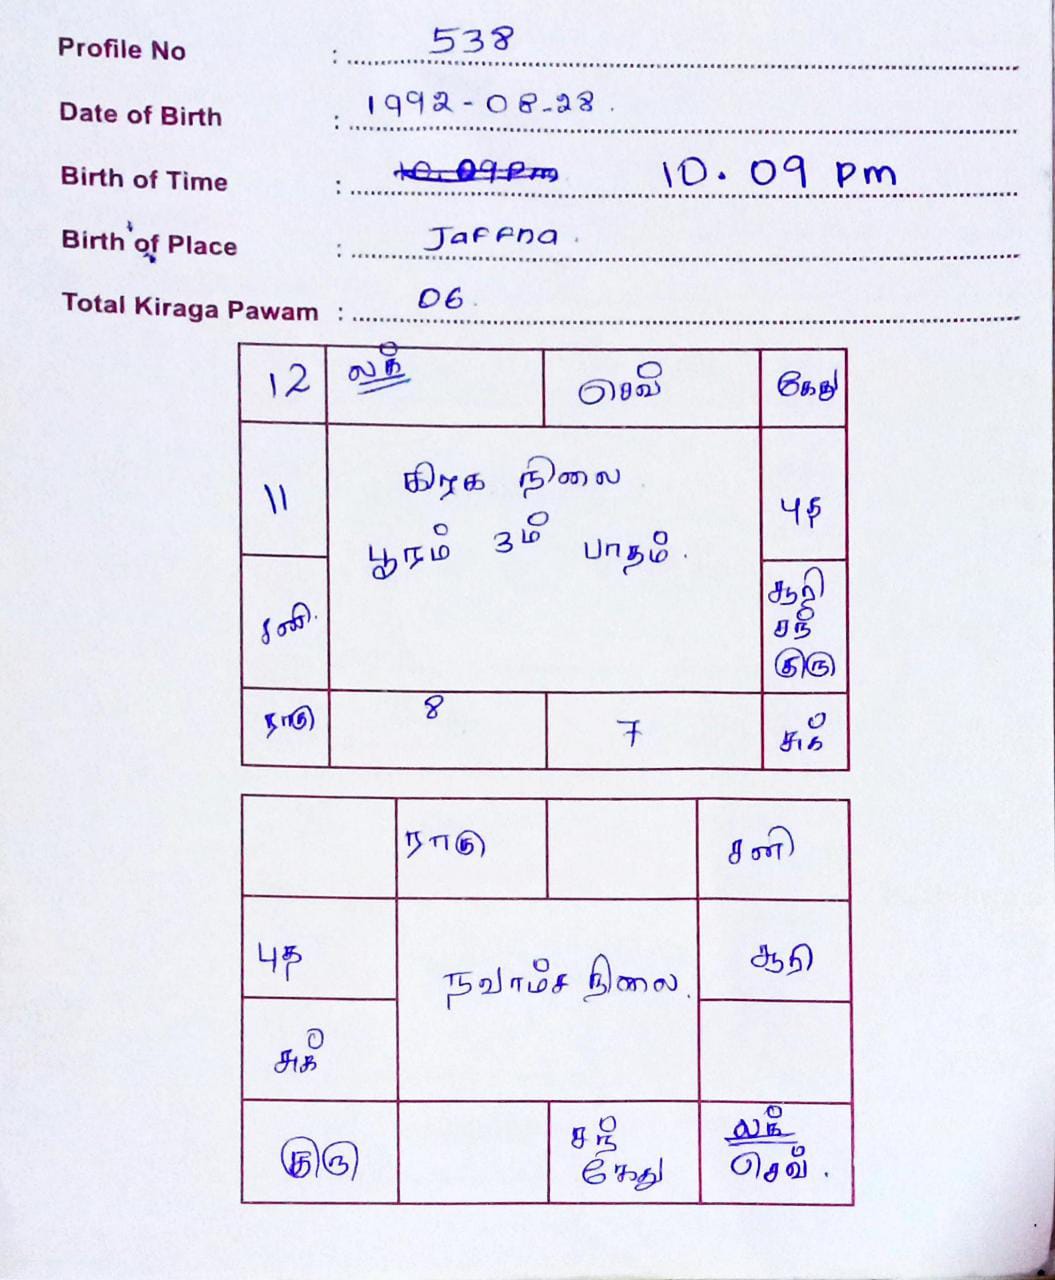 Profile No : 538
Date of Birth : 1992-08-28.
Birth of Time : 10.09 pm 10.09 pm
Birth of Place : Jaffna.
Total Kiraga Pawam : 06.
12 லக் செவ் கேது
கிரக நிலை
11 புத
பூரம் 3ம் பாதம்.
சனி. சூரி
சந்
குரு
ராகு 8 7 சுக்
ராகு சனி
புத சூரி
நவாம்ச நிலை.
சுக்
குரு சந் லக்
கேது செவ்.